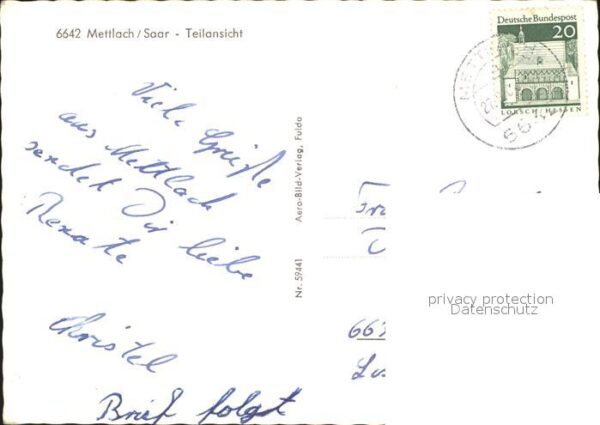 6642 Mettlach/Saar - Teilansicht
Deutsche Bundespost
20
LORSCH/HESSEN
METT
66
Viele Grüße
aus Mettlach
sendet Dir liebe
Renate
Christel
Brief folgt
Aero-Bild-Verlag, Fulda
Nr. 59441
privacy protection
Datenschutz